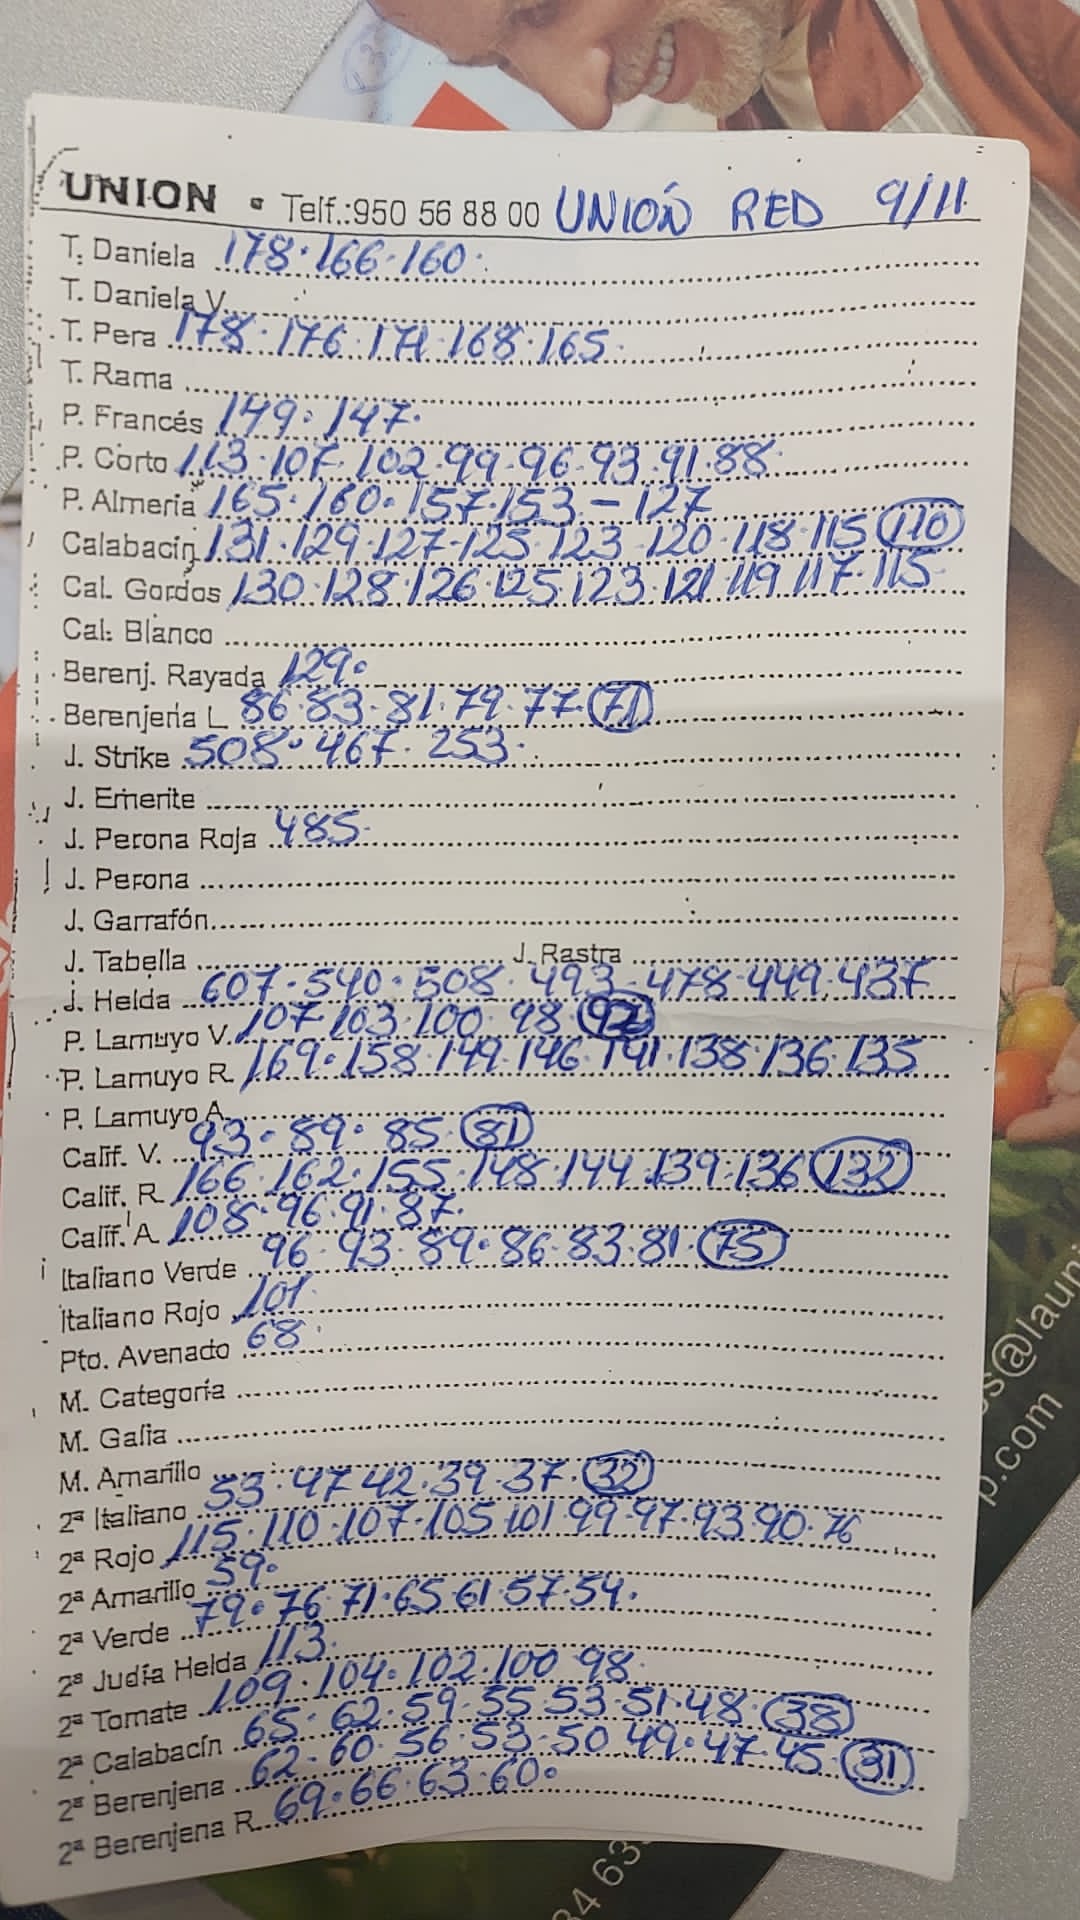 UNION • Telf.:950 56 88 00 UNIÓN RED 9/11
T. Daniela 178·166·160·
T. Daniela V.
T. Pera 178·176·171·168·165·
T. Rama
P. Francés 149·147·
P. Corto 113·107·102·99·96·93·91·88
P. Almería 165·160·157·153 - 127
Calabacín 131·129·127·125·123·120·118·115 110
Cal. Gordos 130·128·126·125·123·121·119·117·115
Cal. Blanco
Berenj. Rayada 129·
Berenjena L 86·83·81·79·77·71
J. Strike 508·467·253·
J. Emerite
J. Perona Roja 485·
J. Perona
J. Garrafón
J. Tabella J. Rastra
J. Helda 607·540·508·493·478·449·437
P. Lamuyo V. 107·103·100·98 92
P. Lamuyo R. 169·158·149·146·141·138·136·135
P. Lamuyo A.
Calif. V. 93·89·85·81
Calif. R. 166·162·155·148·144·139·136 132
Calif. A. 108·96·91·87·
Italiano Verde 96·93·89·86·83·81·75
Italiano Rojo 101·
Pto. Avenado 68·
M. Categoría
M. Galia
M. Amarillo
2ª Italiano 53·47·42·39·37·32
2ª Rojo 115·110·107·105·101·99·97·93·90·76
2ª Amarillo 59·
2ª Verde 79·76·71·65·61·57·54·
2ª Judía Helda 113·
2ª Tomate 109·104·102·100·98·
2ª Calabacín 65·62·59·55·53·51·48·38
2ª Berenjena 62·60·56·53·50·49·47·45·31
2ª Berenjena R. 69·66·63·60·
s@launi
p.com
34 63